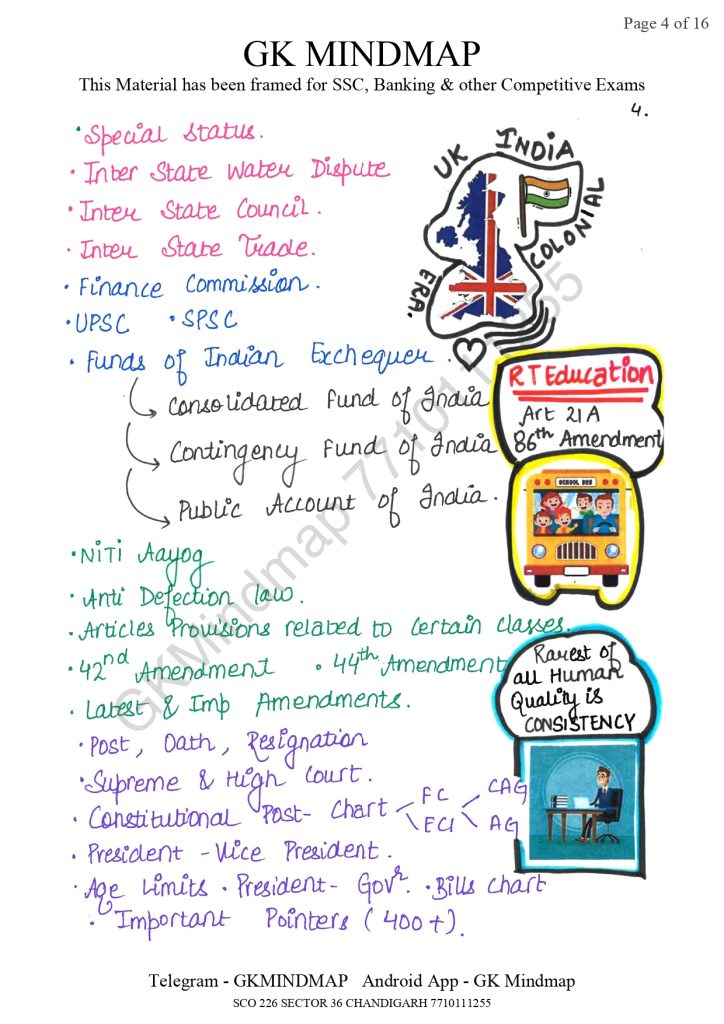 Page 4 of 16
GK MINDMAP
This Material has been framed for SSC, Banking & other Competitive Exams
4.
• Special Status.
• Inter State Water Dispute
• Inter State Council.
• Inter State Trade.
• Finance Commission.
• UPSC • SPSC
• Funds of Indian Exchequer.
Consolidated Fund of India
Contingency Fund of India
Public Account of India.
UK INDIA
COLONIAL
ERA.
RTEducation
Art 21A
86th Amendment
SCHOOL BUS
• NITI Aayog
• Anti Defection law.
• Articles Provisions related to Certain Classes.
• 42nd Amendment • 44th Amendment
• Latest & Imp Amendments.
Rarest of
all Human
Quality is
CONSISTENCY
• Post, Oath, Resignation
• Supreme & High Court.
• Constitutional Post- Chart FC CAG
ECI AG
• President - Vice President.
• Age Limits • President - Govr. • Bills Chart
• Important Pointers (400+).
GKMindmap 7710111255
Telegram - GKMINDMAP Android App - GK Mindmap
SCO 226 SECTOR 36 CHANDIGARH 7710111255